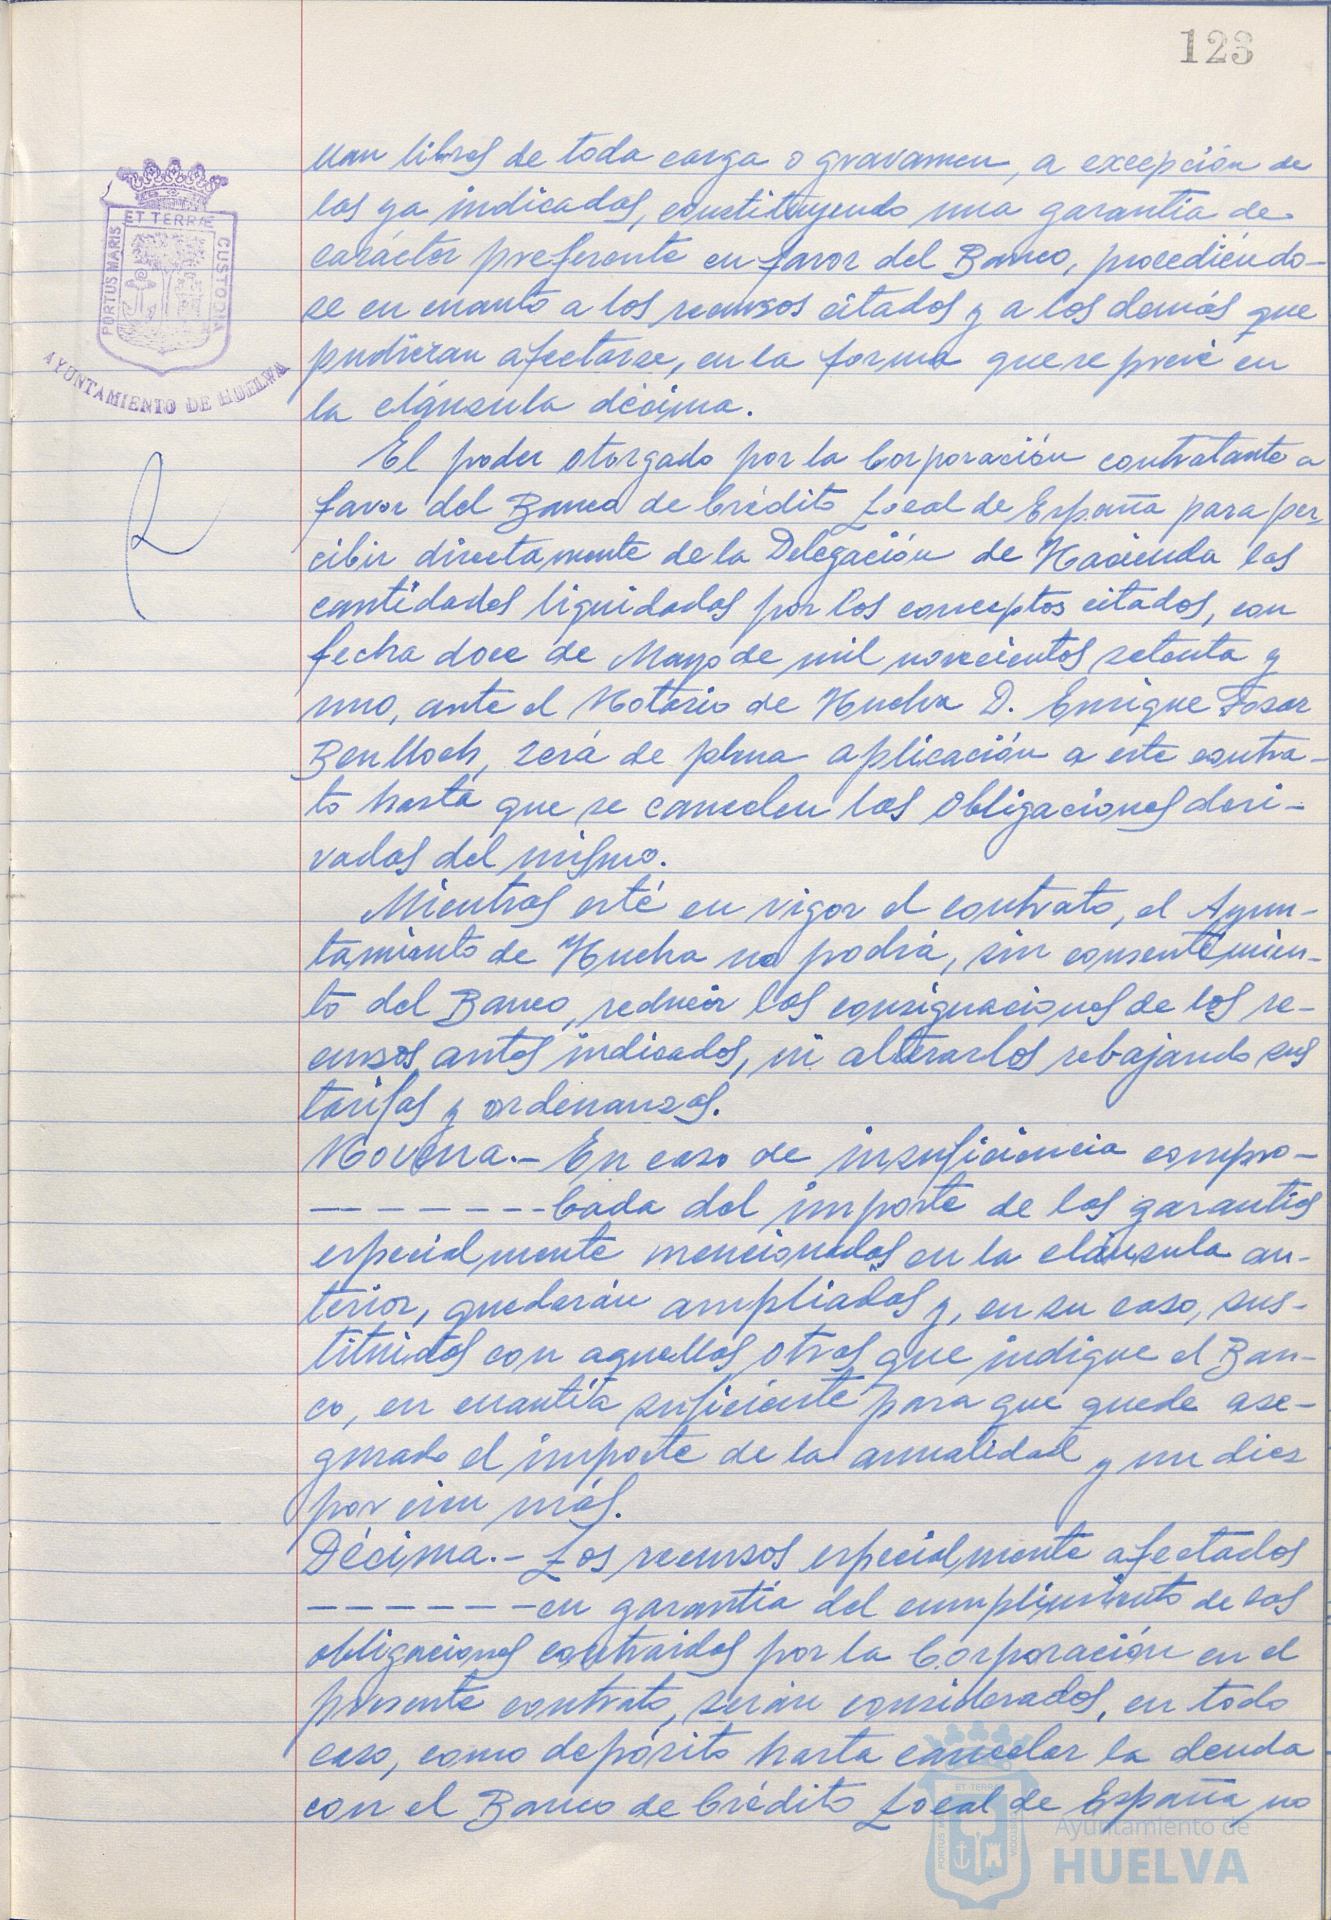 123
ran libres de toda carga o gravamen, a excepción de
los ya indicados, constituyendo una garantía de
carácter preferente en favor del Banco, procediéndo-
se en cuanto a los recursos citados y a los demás que
pudieran afectarse, en la forma que se prevé en
la cláusula décima.
El poder otorgado por la Corporación contratante a
favor del Banco de Crédito Local de España para per
cibir directamente de la Delegación de Hacienda las
cantidades liquidadas por los conceptos citados, con
fecha doce de Mayo de mil novecientos setenta y
uno, ante el Notario de Huelva D. Enrique Fosar
Benlloch, será de plena aplicación a este contra-
to hasta que se cancelen las obligaciones deri-
vadas del mismo.
Mientras esté en vigor el contrato, el Ayun-
tamiento de Huelva no podrá, sin consentimien-
to del Banco, reducir las consignaciones de los re-
cursos antes indicados, ni alterarlos rebajando sus
tarifas y ordenanzas.
Novena.- En caso de insuficiencia compro-
------- bada del importe de las garantías
especialmente mencionadas en la cláusula an-
terior, quedarán ampliadas y, en su caso, sus-
tituidas con aquellas otras que indique el Ban-
co, en cuantía suficiente para que quede ase-
gurado el importe de la anualidad y un diez
por cien más.
Décima.- Los recursos especialmente afectados
------- en garantía del cumplimiento de las
obligaciones contraidas por la Corporación en el
presente contrato, serán considerados, en todo
caso, como depósito hasta cancelar la deuda
con el Banco de Crédito Local de España no
PORTUS MARIS ET TERRÆ CUSTODIA
AYUNTAMIENTO DE HUELVA
Ayuntamiento de
HUELVA